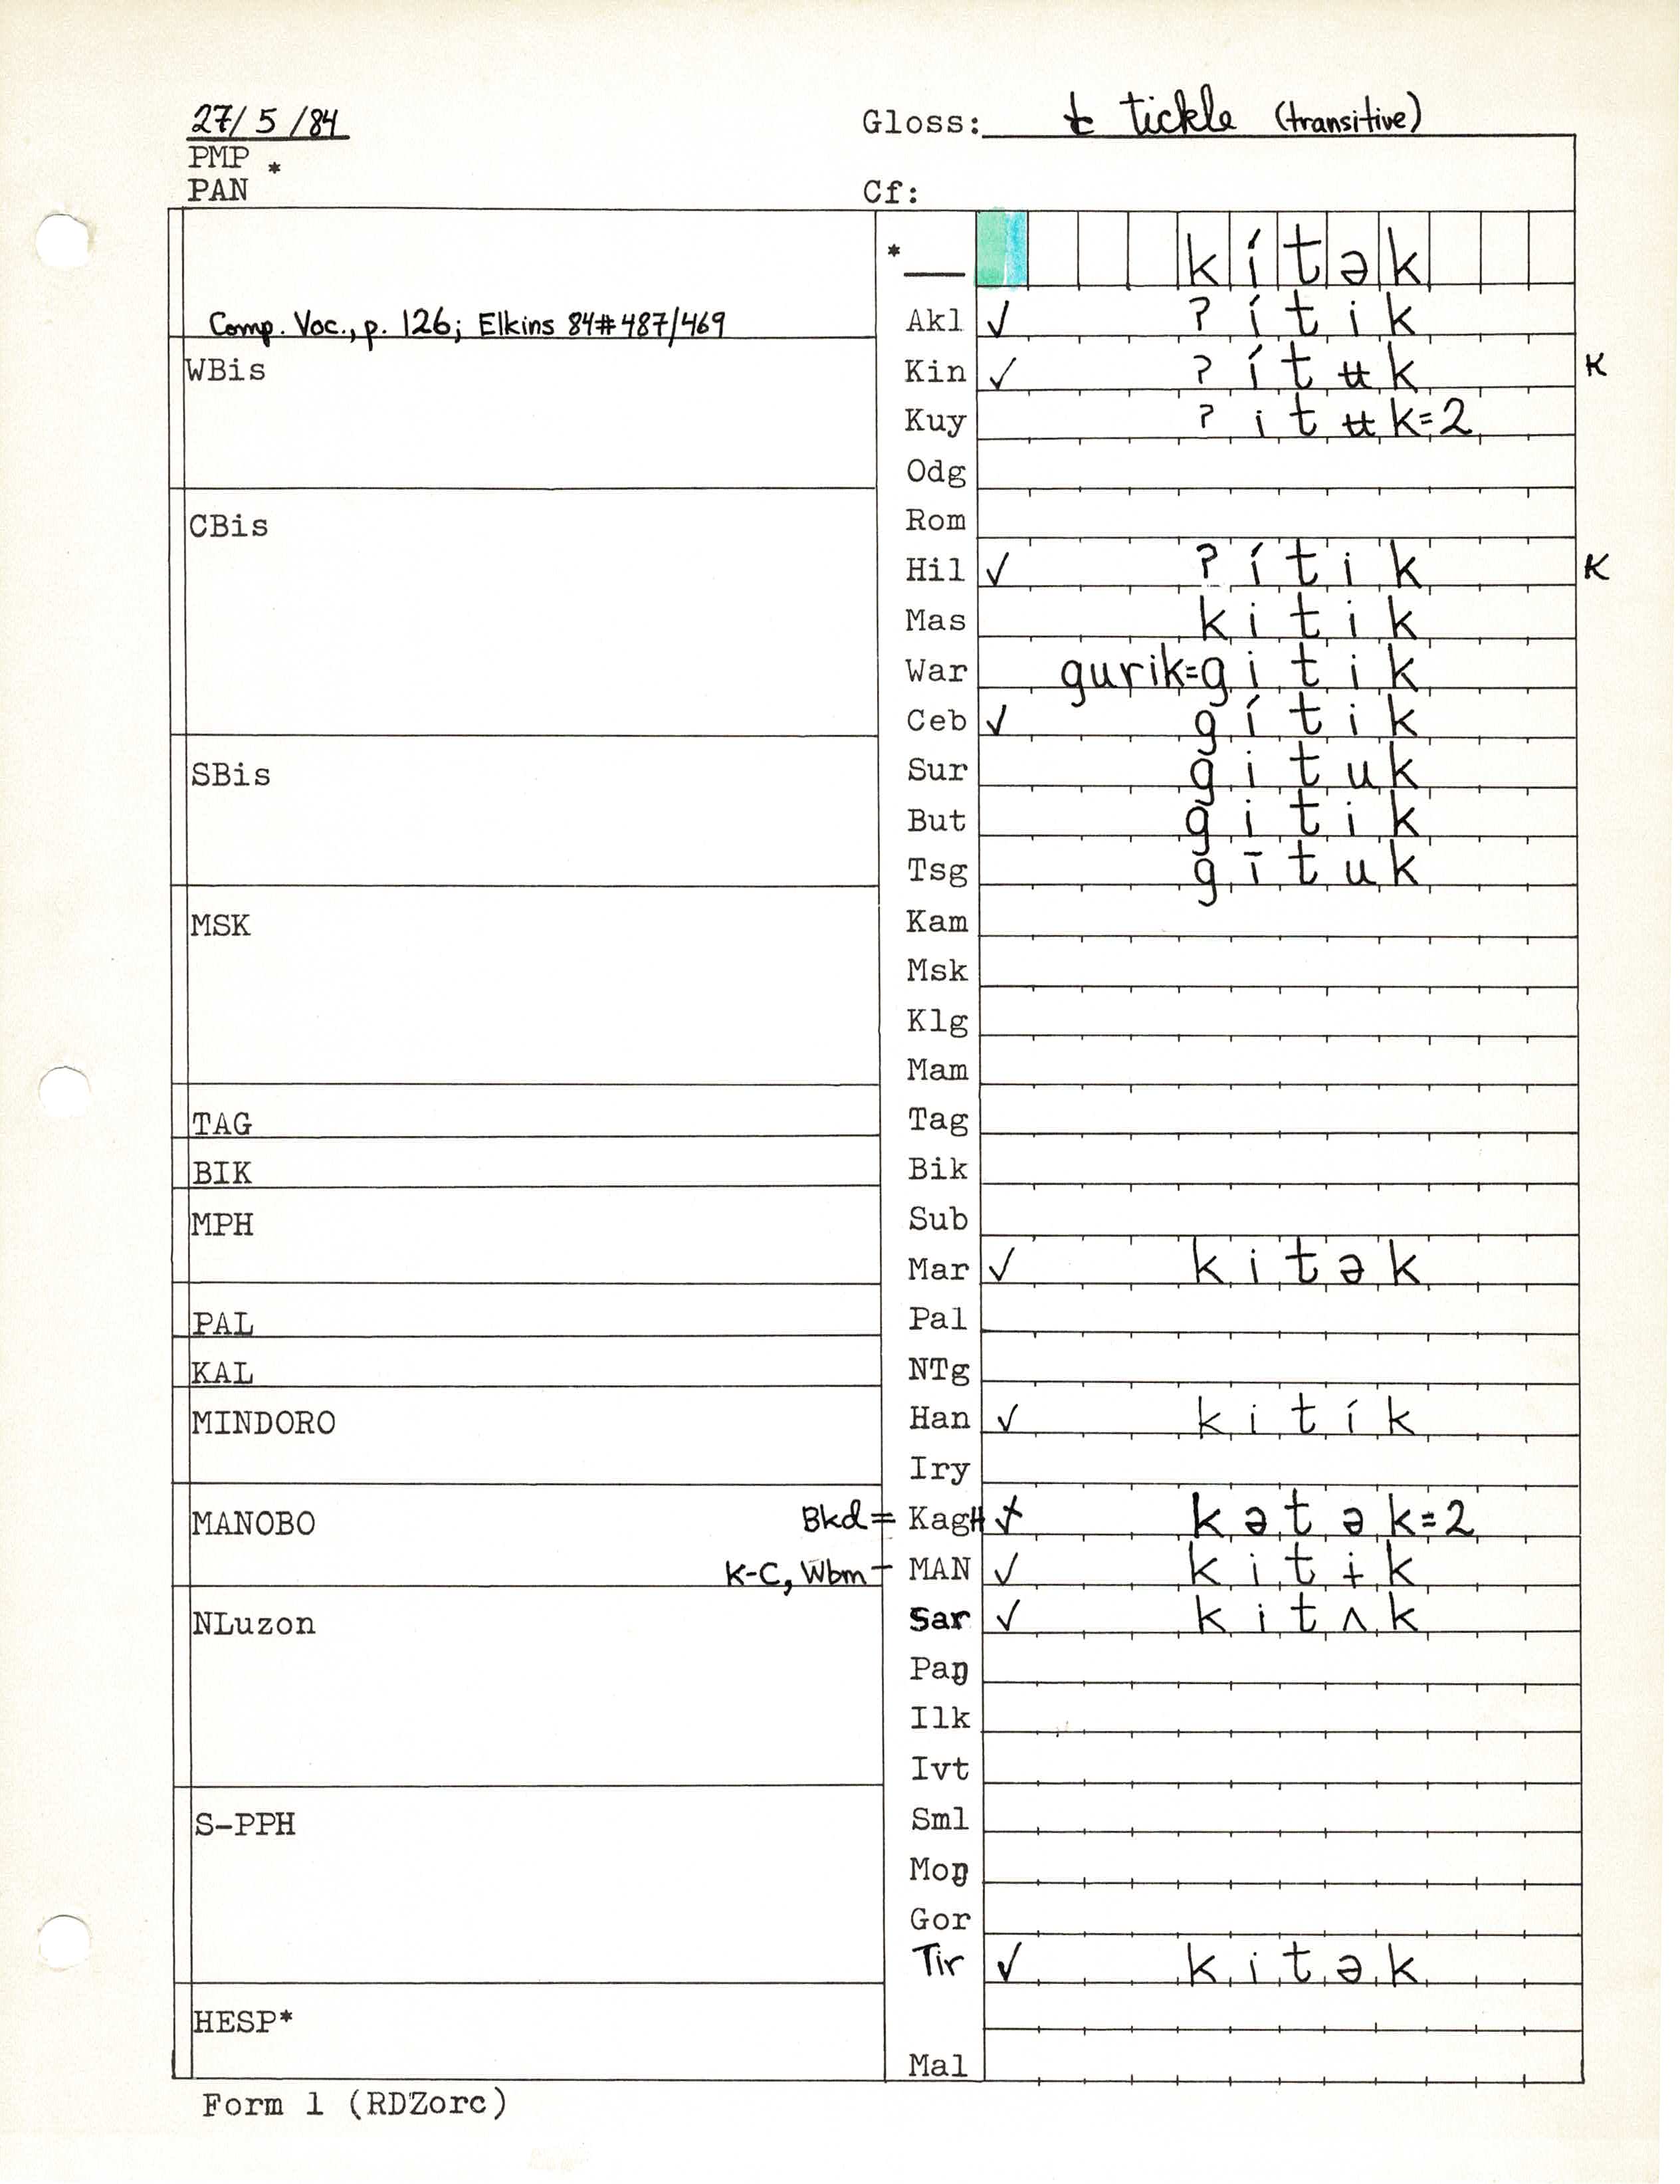 27/5/84 Gloss: t tickle (transitive)
PMP *
PAN Cf:
*__ kítək
Comp. Voc., p. 126; Elkins 84#487/469 Akl ✓ ʔítik
WBis Kin ✓ ʔítʉk K
Kuy ʔitʉk=2
Odg
CBis Rom
Hil ✓ ʔítik K
Mas kitik
War gurik=gitik
Ceb ✓ gítik
SBis Sur gituk
But gitik
Tsg gītuk
MSK Kam
Msk
Klg
Mam
TAG Tag
BIK Bik
MPH Sub
Mar ✓ kitək
PAL Pal
KAL NTg
MINDORO Han ✓ kitík
Iry
MANOBO Bkd= KagH ✓ kətək=2
K-C, Wbm- MAN ✓ kitɨk
NLuzon Sar ✓ kitʌk
Paŋ
Ilk
Ivt
S-PPH Sml
Moŋ
Gor
Tir ✓ kitək
HESP*
Mal
Form 1 (RDZorc)